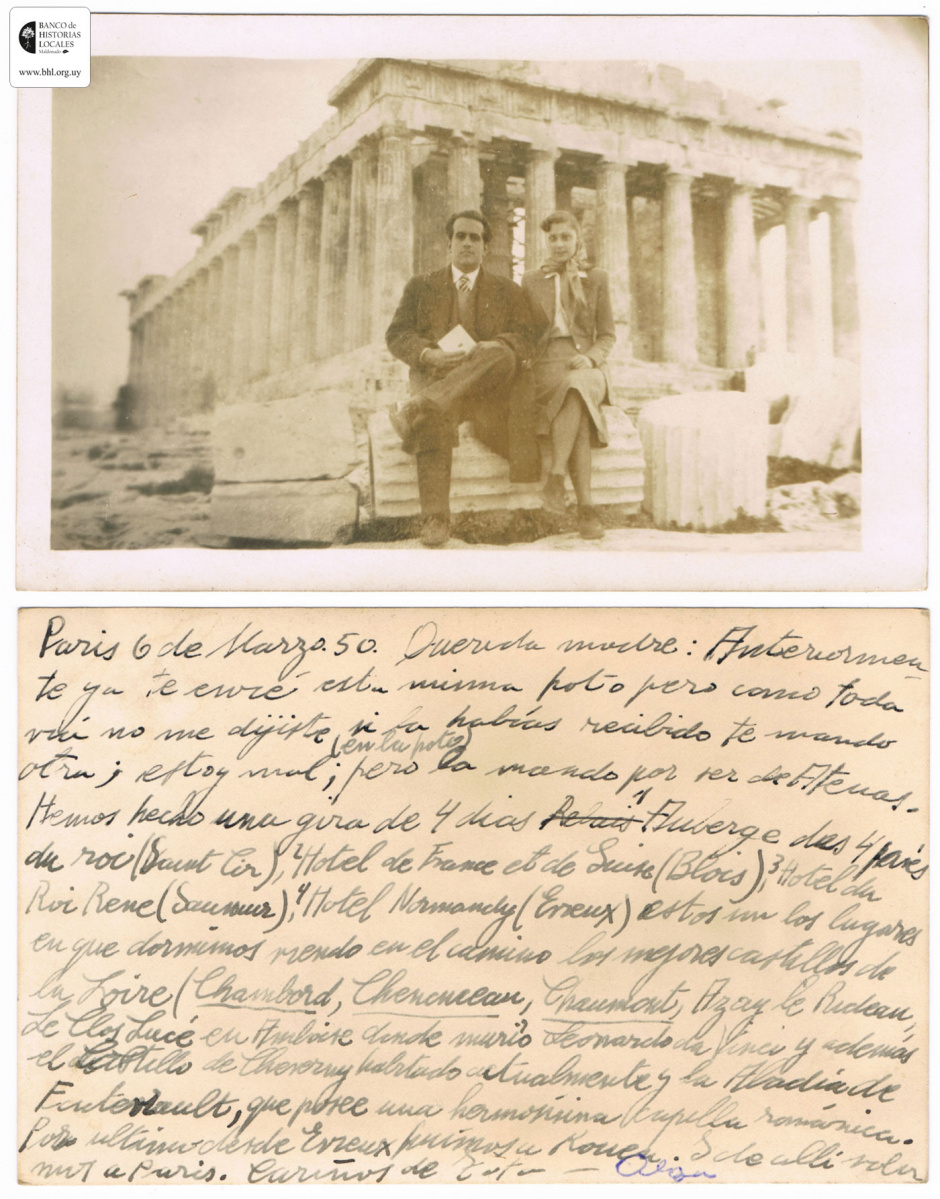 BANCO de
HISTORIAS
LOCALES
Maldonado
www.bhl.org.uy
Paris 6 de Marzo. 50. Querida madre: Anteriormen
te ya te envié esta misma foto pero como toda
vía no me dijiste si la habías recibido te mando
(en la foto)
otra; estoy mal; pero la mando por ser de Atenas.
Hemos hecho una gira de 4 dias 1 Auberge des 4 pavés
du roi (Saint Cir), 2 Hotel de France et de Guise (Blois), 3 Hotel du
Roi Rene (Saumur), 4 Hotel Normandy (Evreux) estos son los lugares
en que dormimos viendo en el camino los mejores castillos de
la Loire (Chambord, Chenonceau, Chaumont, Azay le Rideau,
Le Clos Lucé en Amboise donde murió Leonardo da Vinci y además
el Castillo de Cheverny habitado actualmente y la Abadía de
Fontevrault, que posee una hermosisima capilla románica.
Por ultimo desde Evreux fuimos a Rouen. Y de alli volvi
mos a Paris. Cariños de